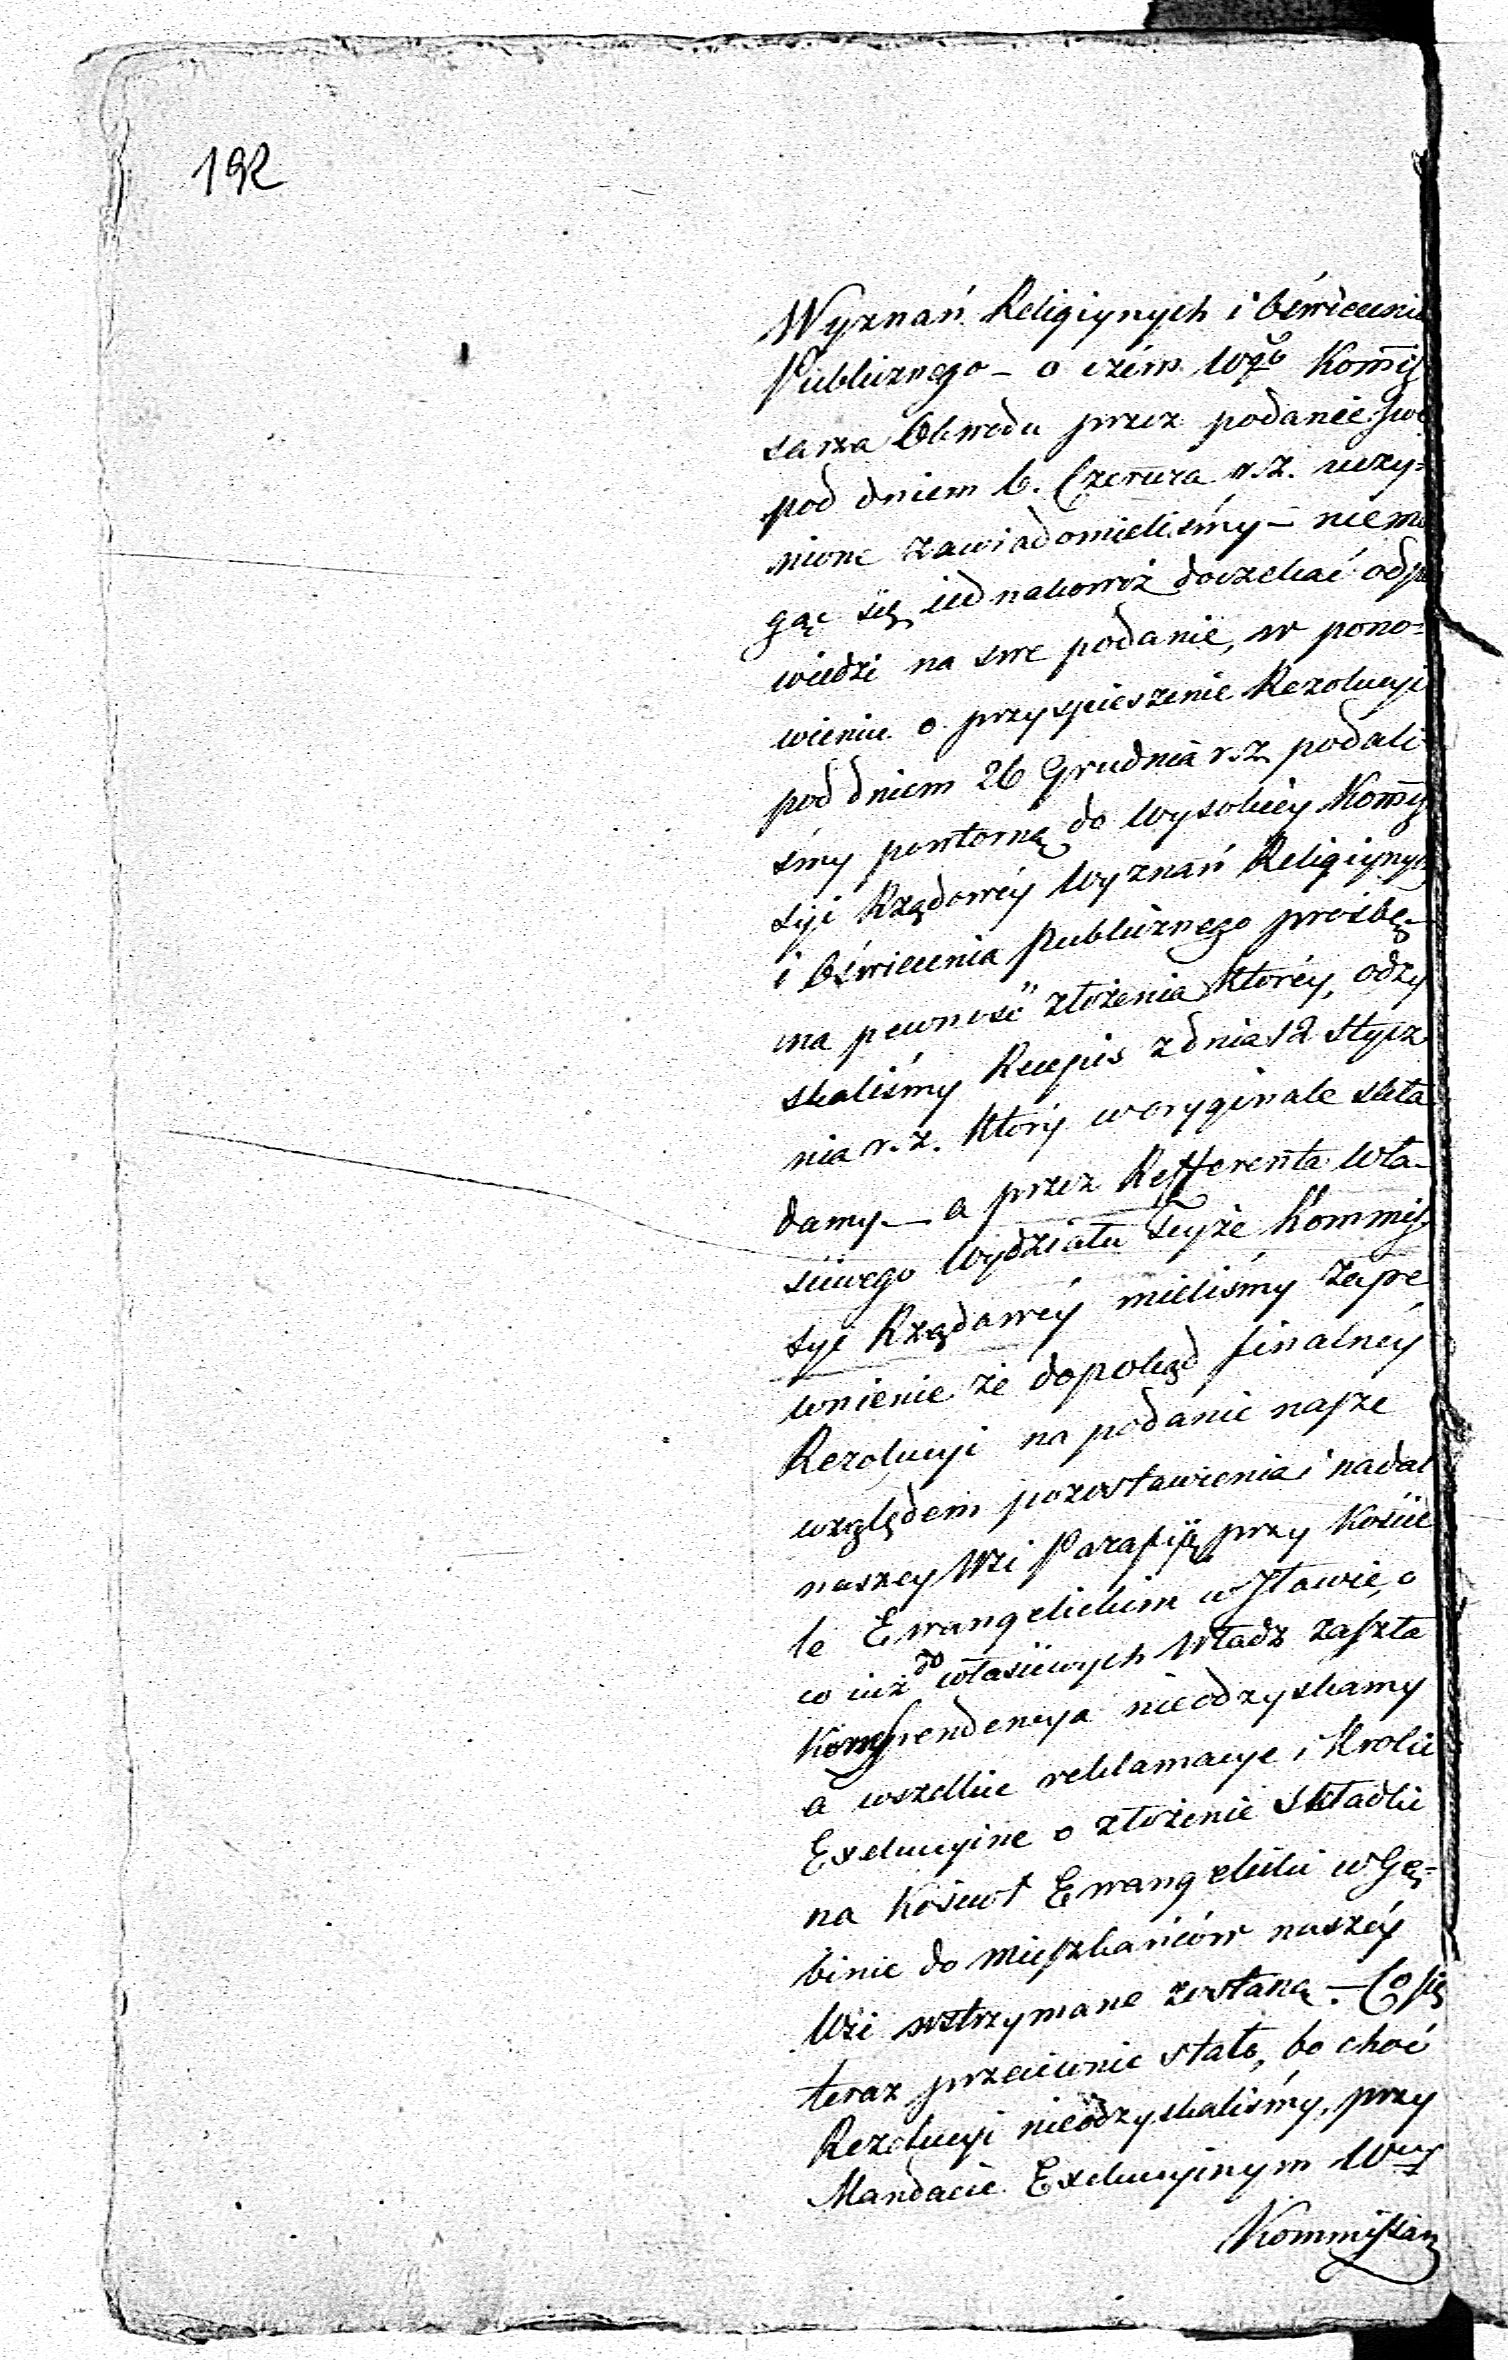 192
Wyznań Religiynych i Oświeceni
Publicznego – o czém Wgo Kommis
sarza Obwodu przez podanie swe
pod dniem 6. Czerwca r. z. uczy=
nione zawiadomieliśmy – niemo
gąc się iednakowoż doczekać odpo
wiedzi na swe podanie, w pono=
wieniu o przyspieszenie Rezolucyi
pod dniem 26 Grudnia r. z. podali
śmy powtorną do Wysokiey Kommis
syi Rządowéy Wyznań Religiynych
i Oświecenia Publicznego prośbę –
na pewność złożenia któréy, odzy
skaliśmy Recepis z dnia 12 Stycz
nia r. z. który w oryginale skła
damy – a przez Refferenta Wła-
ściwego Wydziału Teyże Kommis
syi Rządowéy mieliśmy zape
wnienie że dopokąd finalnéy
Rezolucyi na podanie nasze
względem pozostawienia i nadal
naszey Wsi Parafiią przy Koście
le Ewangelickim w Iławie, o
co iuż do właściwych Władz zaszła
Korrespondencya nieodzyskamy
a wszelkie reklamacye i Kroki
Exekucyine o złożenie Składki
na Kościoł Ewangelicki w Gą=
binie do mieszkańców naszéy
Wsi wstrzymane zostaną. – Co się
teraz przeciwnie stało, bo choć
Rezolucyi nieodzyskaliśmy, przy
Mandacie Exekucyinym Wny
Kommissarz